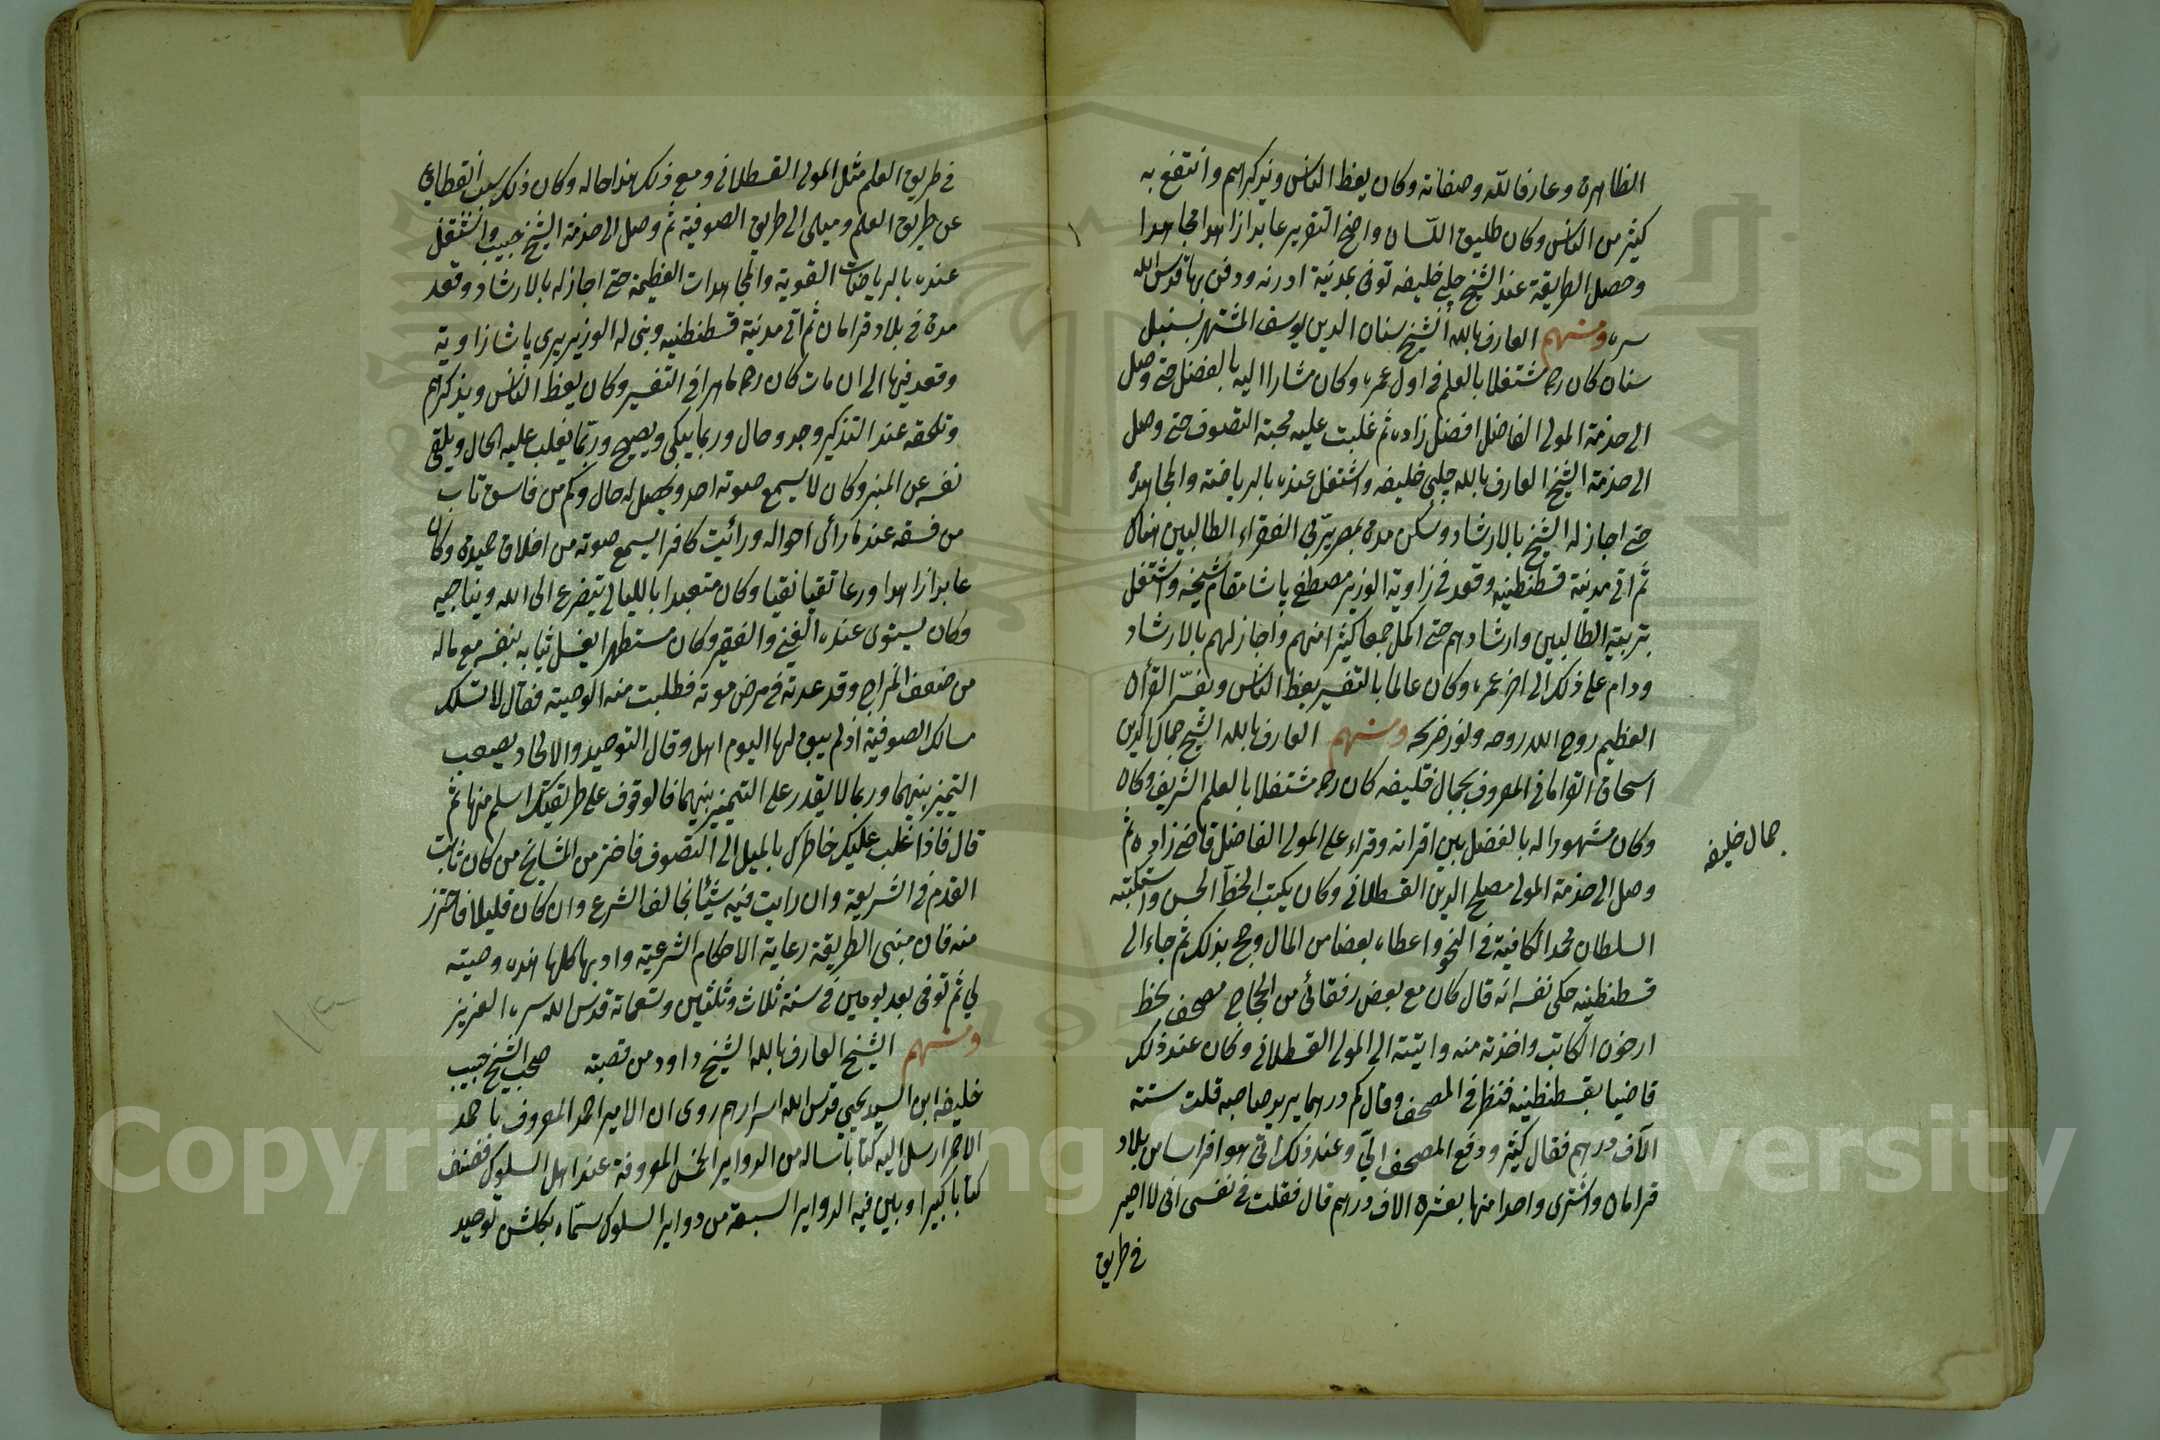 الظاهرة وعارفا لله وصفاته وكان يعظ الناس ويذكرهم وانتفع به
كثير من الناس وكان طليق اللسان واضح التقرير عابدا زاهدا مجاهدا
وحصل الطريقة عند الشيخ چلبي خليفه توفى بمدينة ادرنه ودفن بها قدس الله
سره ومنهم العارف بالله الشيخ سنان الدين يوسف المشتهر بسنبل
سنان كان رحمه مشتغلا بالعلم في اول عمره وكان مشارا اليه بالفضل حتى وصل
الى خدمة المولى الفاضل افضل زاده ثم غلبت عليه محبة التصوف حتى وصل
الى خدمة الشيخ العارف بالله چلبى خليفه واشتغل عنده بالرياضة والمجاهدة
حتى اجاز له الشيخ بالارشاد وسكن مدة بمصر يربى الفقراء الطالبين هناك
ثم اتى مدينة قسطنطنيه وقعد في زاوية الوزير مصطفى پاشا مقام شيخه واشتغل
بتربية الطالبين وارشادهم حتى اكمل جمعا كثيرا منهم واجاز لهم بالارشاد
ودام على ذلك الى اخر عمره وكان عالما بالتفسير يعظ الناس ويفسّر القرأن
العظيم روح الله روحه ونور ضريحه ومنهم العارف بالله الشيخ جمال الدين
اسحاق القرامانى المعروف بجمال خليفه كان رحمه مشتغلا بالعلم الشريف وكان
وكان مشهودا له بالفضل بين اقرانه وقراء على المولى الفاضل قاضى زاده ثم
وصل الى خدمة المولى مصلح الدين القسطلانى وكان يكتب الخط الحسن واستكتبه
السلطان محمد الكافية في النحو واعطاه بعضا من المال وحج بذلك ثم جاء الى
قسطنطنيه حكى نفسه انه قال كان مع بعض رفقائى من الحجاج مصحف بخط
ارغون الكاتب واخذته منه واتيته الى المولى القسطلانى وكان عند ذلك
قاضيا بقسطنطنيه فنظر في المصحف وقال كم درهما يريد صاحبه قلت ستة
الآف درهم فقال كثير ودفع المصحف الىّ وعند ذلك اتى هو افراسا من بلاد
قرامان واشترى واحدا منها بعشرة الاف دراهم قال فقلت في نفسى انى لا اصير
في طريق
جمال خليفه
في طريق العلم مثل المولى القسطلانى ومع ذلك هذا حاله وكان ذلك سبب انقطاعى
عن طريق العلم وميلى الى طريق الصوفية ثم وصل الى خدمة الشيخ حبيب واشتغل
عنده بالرياضات القوية والمجاهدات العظيمة حتى اجاز له بالارشاد وقعد
مدة في بلاد قرامان ثم اتى مدينة قسطنطنيه وبنى له الوزير پيرى پاشا زاوية
وقعد فيها الى ان مات كان رحمه ماهرا في التفسير وكان يعظ الناس ويذكرهم
وتلحقه عند التذكير وجد وحال وربما يبكى ويصيح وربّما يغلب عليه الحال ويلقى
نفسه عن المنبر وكان لا يسمع صوته احد ويحصل له حال وكم من فاسق تاب
من فسقه عند ما رأى احواله ورائيت كافرا يسمع صوته من اخلاق حميدة وكان
عابدا زاهدا ورعا تقيا نقيا وكان متعبدا بالليالى يتضرع الى الله ويناجيه
وكان يستوى عنده الغنى والفقير وكان مستطهرا يغسل ثيابه بنفسه مع ماله
من ضعف المزاج وقد عدته في مرض موته فطلبت منه الوصية فقال لا تسلك
مسالك الصوفية اذ لم يبق لها اليوم اهل وقال التوحيد والالحاد يصعب
التميز بينهما وربما لا يقدر على التمييز بينهما فالوقوف على طريقتك اسلم منها ثم
قال فاذا غلب عليك خاطرك بالميل الى التصوف فاختر من المشايخ من كان ثابت
القدم في الشريعة وان رايت فيه شيئا يخالف الشرع وان كان قليلا فاحترز
منه فان مبنى الطريقة رعاية الاحكام الشرعية وادبها كلها هذه وصيته
لي ثم توفى بعد يومين في سنة ثلاث وثلثين وتسعمائة قدس الله سره العزيز
ومنهم الشيخ العارف بالله الشيخ داود من قصبة صحب الشيخ حبيب
خليفه ابن السيد يحيى قدس الله اسرارهم روى ان الامير احمد المعروف باحمد
الاحمر ارسل اليه كتابا ساله من الدواير الخمس المعروفة عند اهل السلوك فصنف
كتابا كبيرا وبين فيه الدواير السبعة من دواير السلوك سمّاه بكلشن توحيد
Copyright © King Saud University
1957